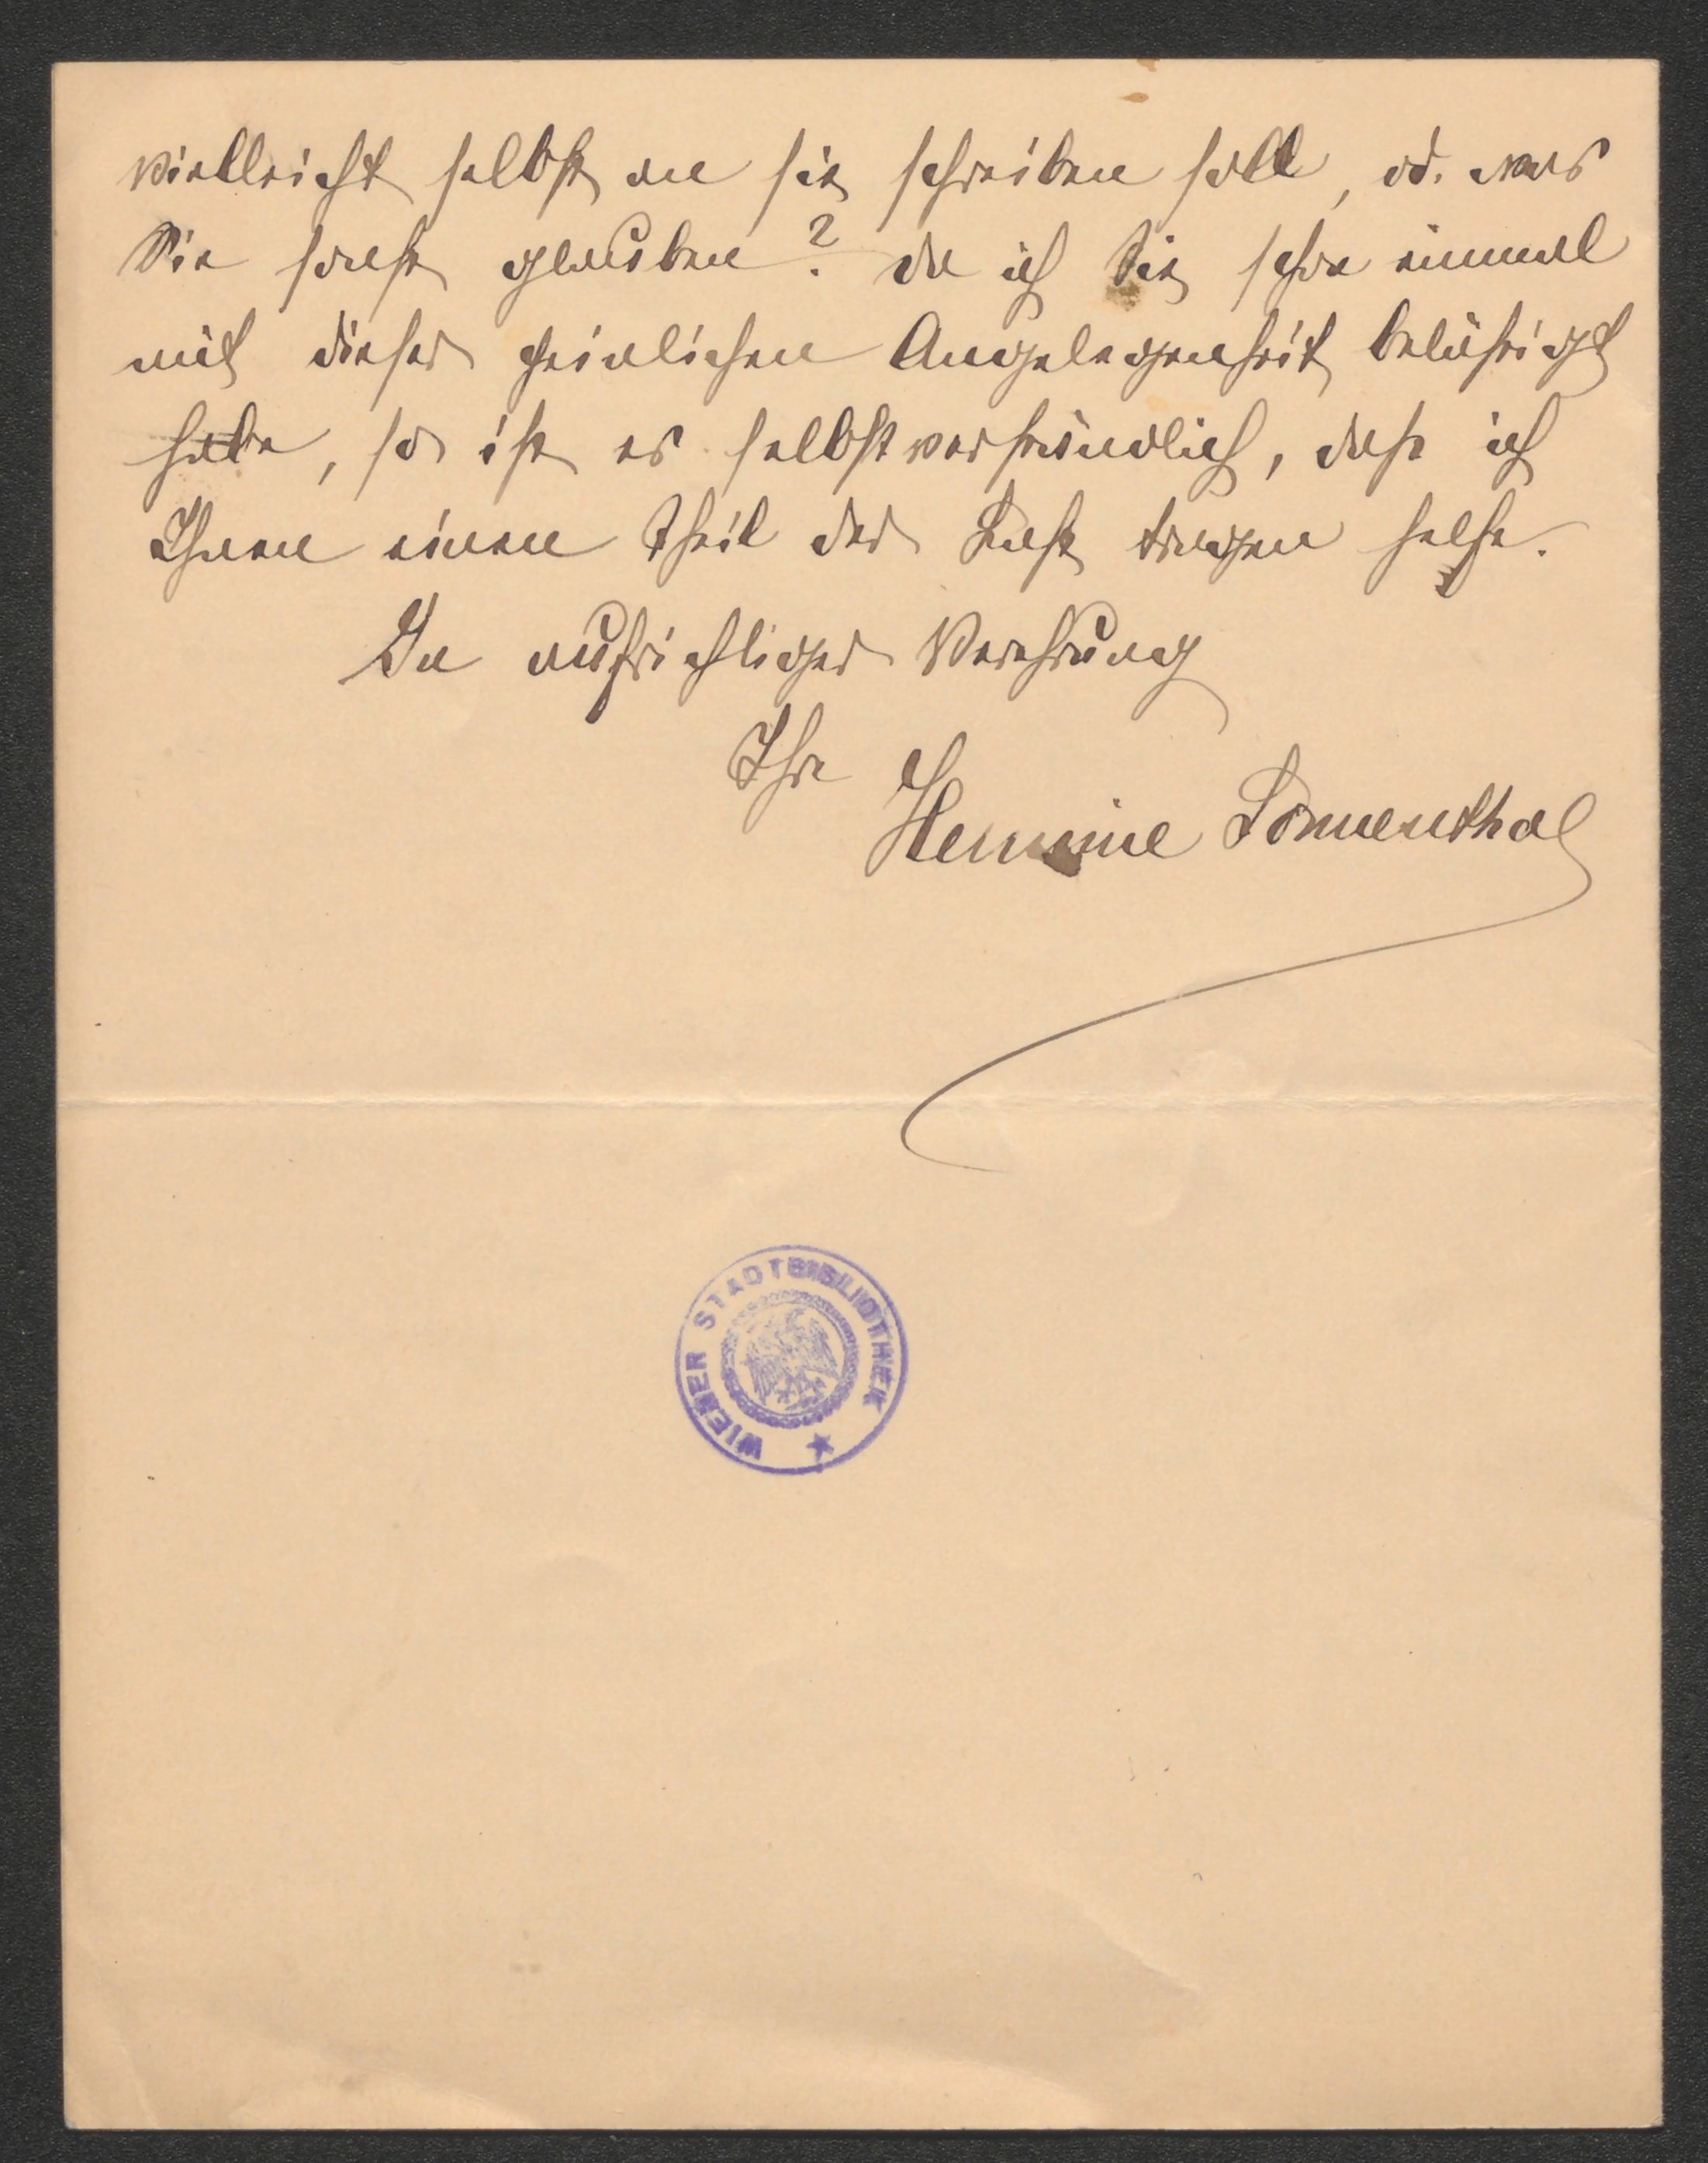 vielleicht selbst an sie schreiben soll, od. was
Sie sonst glauben? da ich Sie schon einmal
mit dieser peinlichen Angelegenheit belästigt
habe, so ist es selbstverständlich, dass ich
Ihnen einen Theil der Last tragen helfe.
In aufrichtiger Verehrung
Ihre
Hermine Sonnenthal
WIENER STADTBIBLIOTHEK